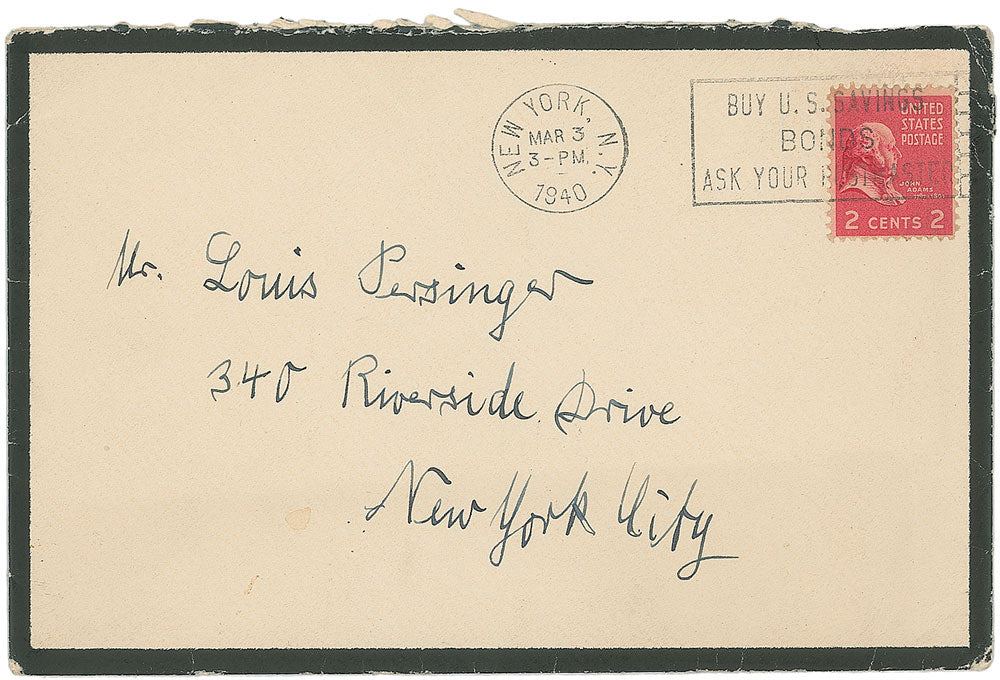 NEW YORK, N.Y.
MAR 3
3-PM
1940
BUY U. S. SAVINGS
BONDS
ASK YOUR POSTMASTER
UNITED
STATES
POSTAGE
JOHN
ADAMS
2 CENTS 2
Mr. Louis Persinger
340 Riverside Drive
New York City